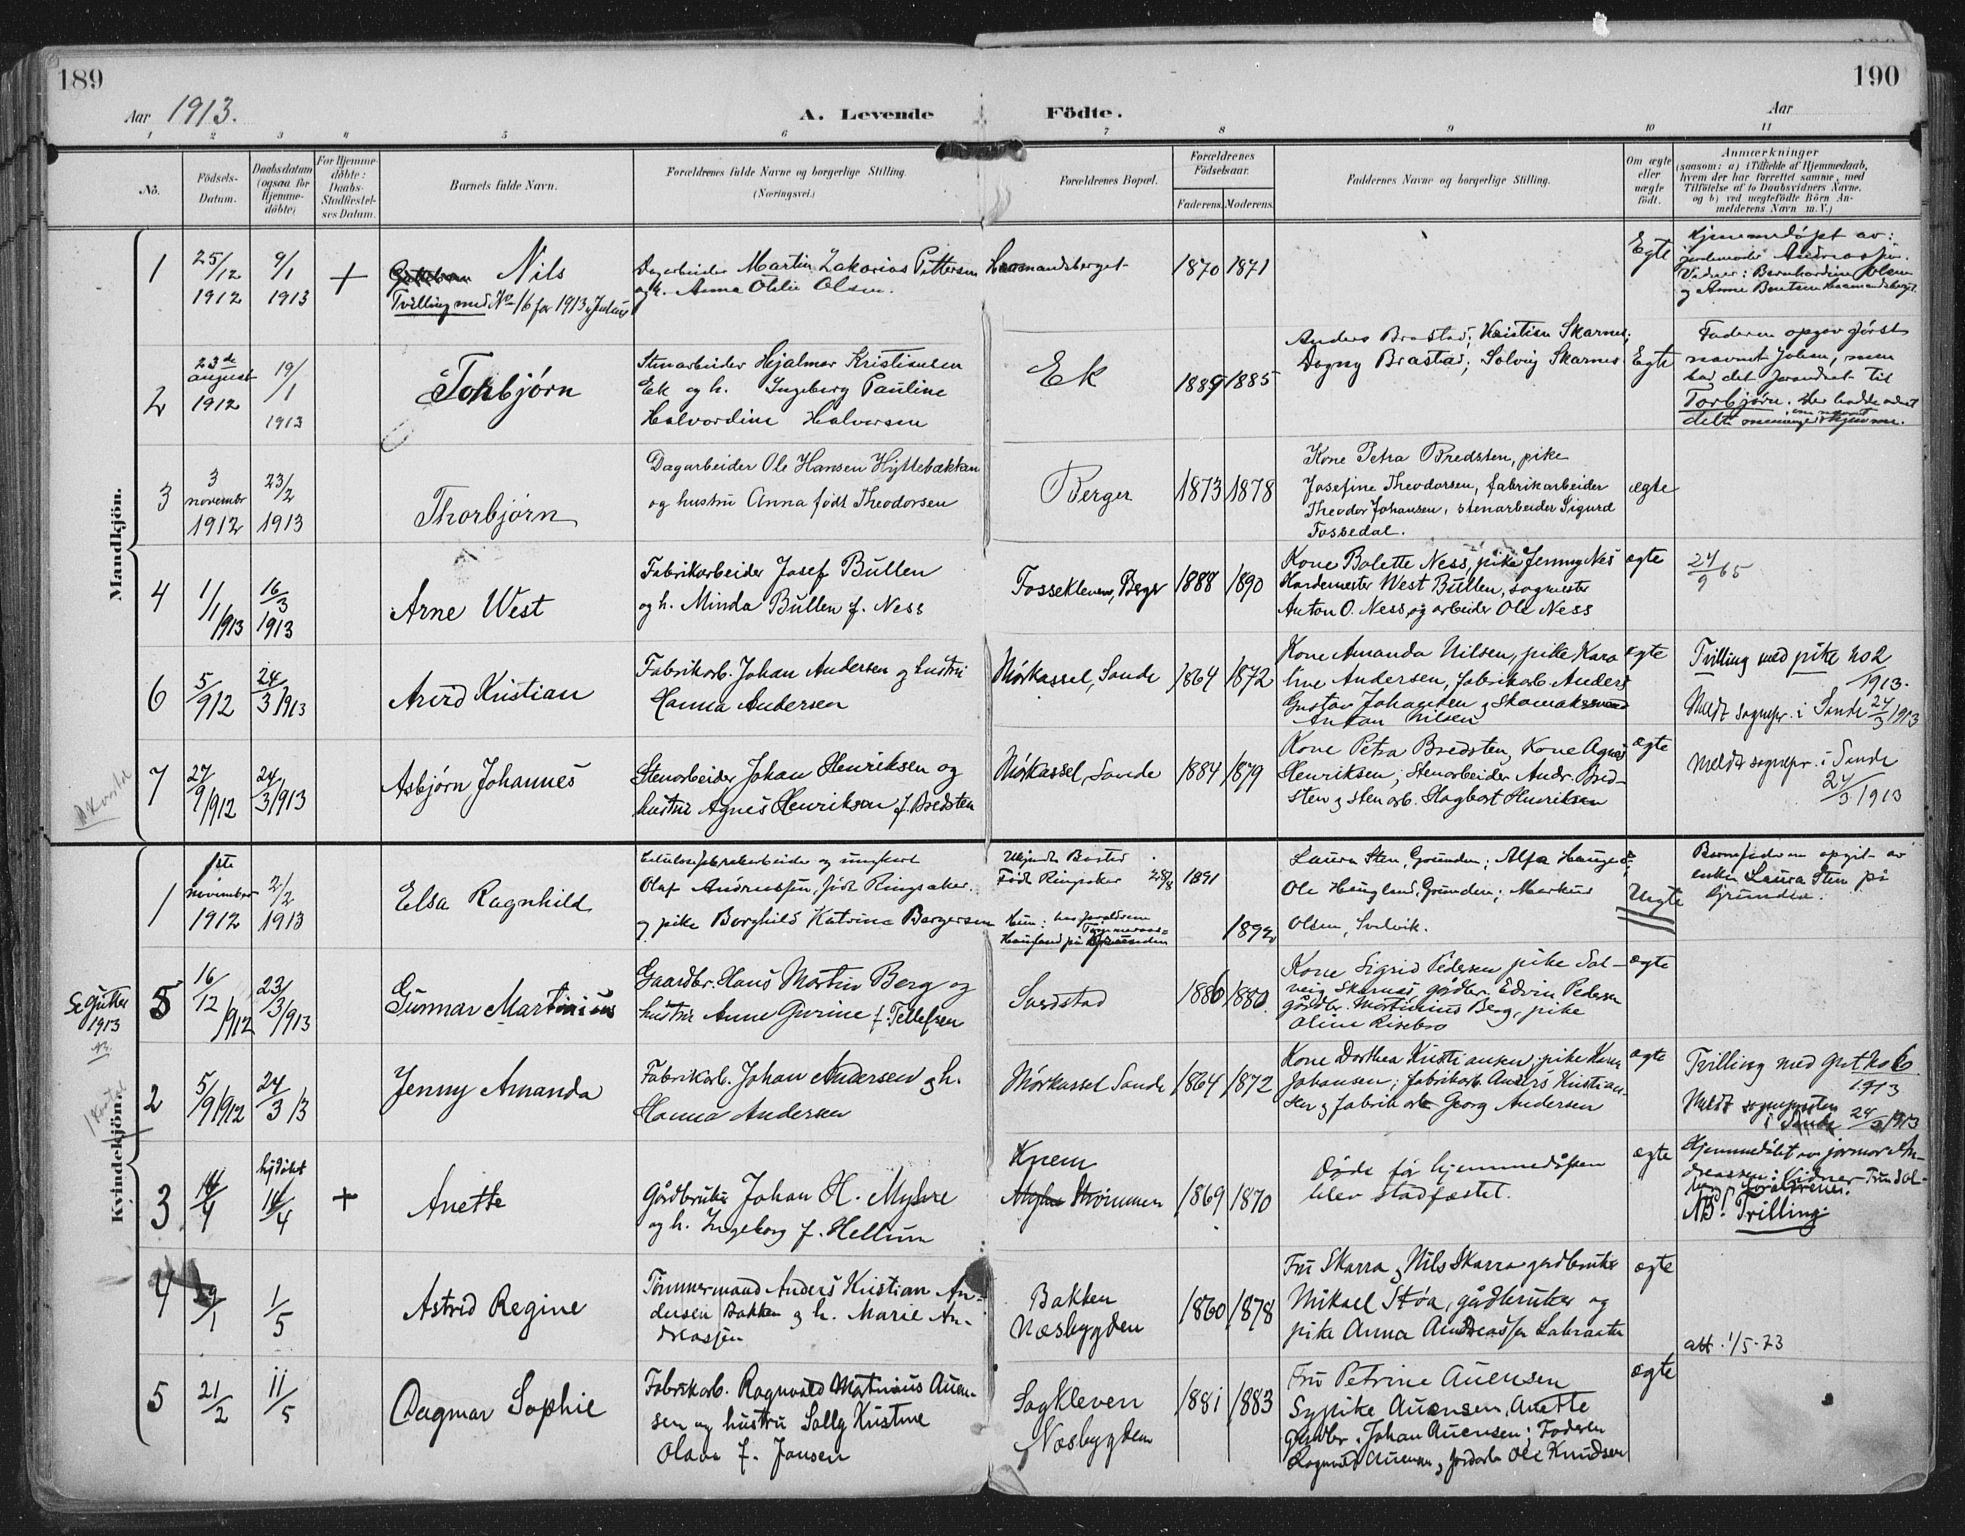 189
190
Aar 1913.
A. Levende Födte.
Aar
1 2 3 4 5 6 7 8 9 10 11
No.
Födsels-
Datum.
Daabsdatum
(ogsaa for
Hjemme-
döbte)
For Hjemme-
döbte:
Daabs-
Stadfæstel-
ses Datum.
Barnets fulde Navn.
Forældrenes fulde Navne og borgerlige Stilling.
(Næringsvei.)
Forældrenes Bopæl.
Forældrenes
Födselsaar.
Faderens. Moderens.
Faddernes Navne og borgerlige Stilling.
Om ægte
eller
uægte
födt.
Anmærkninger
(saasom: a) i Tilfælde af Hjemmedaab,
hvem der har forrettet samme, med
Tilföielse af to Daabsvidners Navne,
og b) ved uægtefödte Börn An-
melderens Navn m. V.)
Mandkjön.
1
25/12
1912
9/1
1913
+
Nils
Tvilling med No 16 for 1913, Julius
Dagarbeider Martin Zakarias Pettersen
og h. Anna Otilie Olsen.
Haamandsberget
1870 1871
Egte
Hjemmedøpt av:
jordemoder Andreassen.
Vidner: Bernhardine Olsen
og Anne Bentsen Haamandsberget
2
23de
august
1912
19/1
1913
Torbjørn
Stenarbeider Hjalmar Kristiansen
Ek og h. Ingeborg Pauline
Halvordine Halvorsen
Ek
1889 1885
Anders Brastad; Kristian Skarnes;
Dagny Brastad; Solvig Skarnes
Egte
Faderen opgav først
navnet Johan, men
bad det forandret til
Torbjørn.
3
3
november
1912
23/2
1913
Thorbjørn
Dagarbeider Ole Hansen Hyttebakken
og hustru Anna født Theodorsen
Berger
1873 1878
Kone Petra Bredsten, pike
Josefine Theodorsen, fabrikarbeider
Theodor Johansen, stenarbeider Sigurd
Fossedal.
ægte
4
1/1 1913
16/3
1913
Arne West
Fabrikarbeider Josef Bullen
og h. Minda Bullen f. Ness
Fossekleven, Berger
1888 1890
Kone Bolette Ness, pike Jenny Nes
West Bullen, sagmester
Anton O. Ness, og arbeider Ole Ness
ægte
24/9 65
6
5/9 12
24/3 1913
Arvid Kristian
Fabrikarb. Johan Andersen og hustru
Hanna Andersen
Mørkassel, Sande
1864 1872
Kone Amanda Nilsen, pike Karo
line Andersen, fabrikarb. Anders
Gustav Johansen og Skomaker
Anton Nilsen
ægte
Tvilling med pike no 2
1913.
Meldt sognepr. i Sande 24/3 1913
7
27/9 1912
24/3 1913
Asbjørn Johannes
Stenarbeider Johan Henriksen og
hustru Agnes Henriksen f. Bredsten
Mørkassel, Sande
1884 1879
Kone Petra Bredsten, Kone Agnes
Henriksen; Stenarbeider Andr. Bred-
sten og sten arb. Hagbart Henriksen
ægte
Meldt sognepr. i Sande
24/3 1913
Kvindekjön.
1
1ste
november
1912
2/2
1913
Elsa Ragnhild
Celulosefabrikarbeider og ungkarl
Olaf Andreassen, født Ringsaker.
og pike Borghild Katrine Borgersen
Ukjendt Bosted.
Født Ringsaker 28/8
Hun: hos forældrene
1891
1892
Laura Sten, Grunden; Alfa Haugen;
Ole Haugland, Grunden; Markus
Olsen, Svelvik.
Uegte
Barnefaderen opgit av
enken Laura Sten på
Grunden.
Se gutter
1913
5
16/12 1912
23/3 1913
Gunnar Martinius
Gaardbr. Hans Martin Berg og
hustru Anne Gurine f. Tellefsen
Svedstad
1886 1880
Kone Sigrid Pedersen pike Sol-
veig Skarnæs gårdbr. Edvin Pedersen
gårdbr. Martinius Berg, pike
Oline Risebro
ægte
2
5/9 1912
24/3 13
Jenny Amanda
Fabrikarb. Johan Andersen og h.
Hanna Andersen
Mørkassel Sande
1864 1872
Kone Dorthea Kristiansen; pike Karen
Johansen; fabrikarb. Anders Kristian-
sen og fabrik arb Georg Andersen
ægte
Tvilling med gut no 6
1913
Meldt sognepresten
i Sande 24/3 1913
3
14/4
hjdøbt
14/4
+
Anette
Gårdbruker Johan H. Myhre
og h. Ingeborg f. Hellum
Knem
Strømmen
1869 1870
Døde før hjemmedåpen
blev stadfæstet.
ægte
Hjemmedøbt av jormor An-
dreassen: Vidner Trudol-
forældrene.
NB! Trilling.
4
29/1
1/5
Astrid Regine
Tømmermand Anders Kristian An-
dersen Bakken og h. Marie An-
dreassen
Bakken
Næsbygden
1860 1878
Fru Skarra og Nils Skarra gardbruker
Mikael Støa, gårdbruker og
pike Anna Andreassen
ægte
att. 1/5-23
5
21/2
11/5
Dagmar Sophie
Fabrikarb. Ragnvald Matinius Auen-
sen og hustru Sally Kristine
Olava f. Jansen
Sagkleven
Næsbygden
1881 1883
Fru Petrine Auensen
Sypike Auensen, Anette
Gårdbr. Johan Auensen; Faderen
Ragnvald Auensen og Jordarb Ole Knudsen
ægte